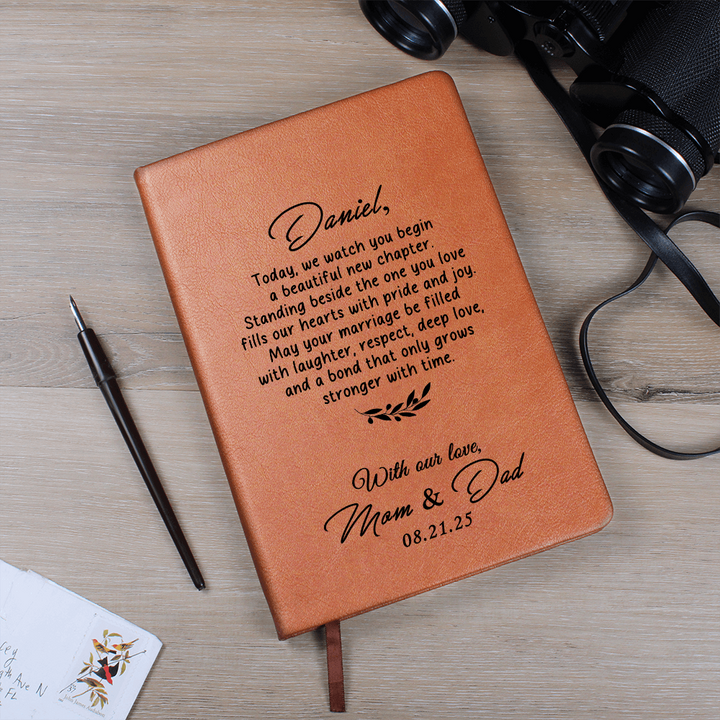 Daniel,
Today, we watch you begin
a beautiful new chapter.
Standing beside the one you love
fills our hearts with pride and joy.
May your marriage be filled
with laughter, respect, deep love,
and a bond that only grows
stronger with time.
With our love,
Mom & Dad
08.21.25
Ave N
FL